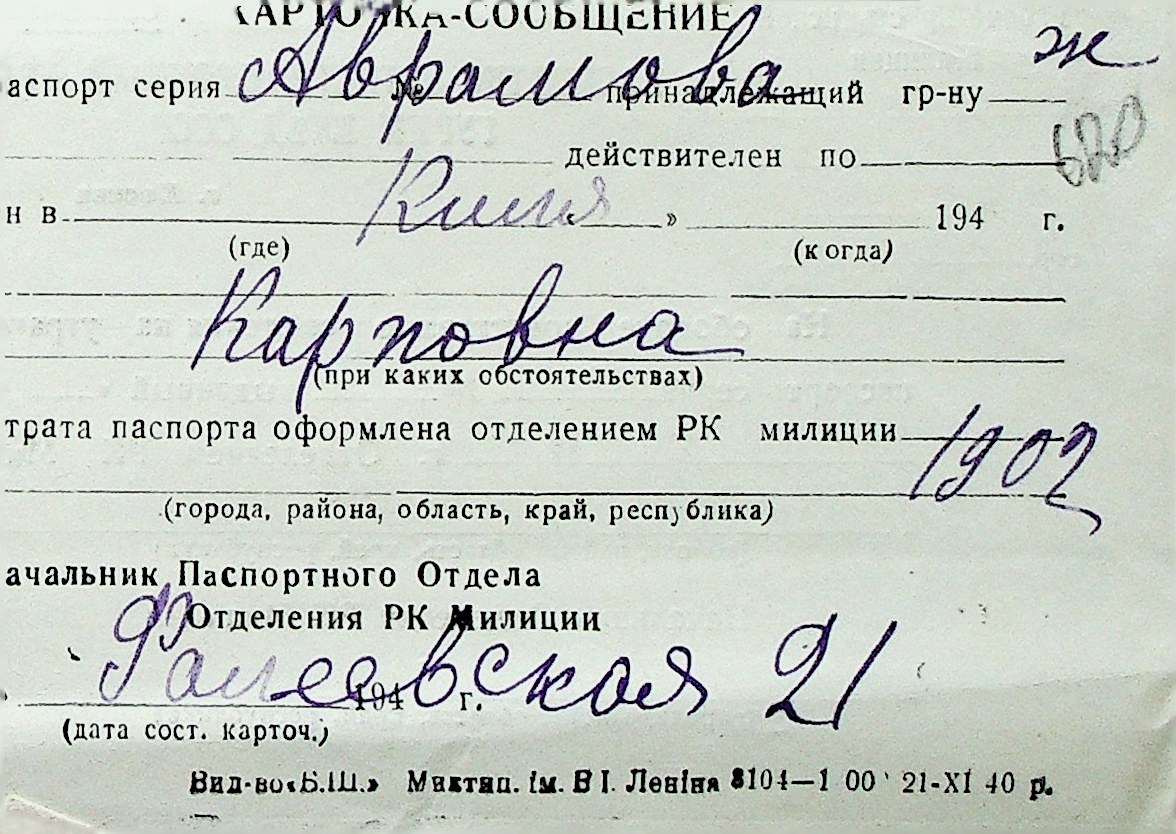 КАРТОЧКА-СООБЩЕНИЕ
ж
аспорт серия № принадлежащий гр-ну
Аврамова
620
действителен по
н в « » 194 г.
(где) (когда)
Карповна
(при каких обстоятельствах)
трата паспорта оформлена отделением РК милиции
1902
(города, района, область, край, республика)
ачальник Паспортного Отдела
Отделения РК Милиции
21
194 г.
(дата сост. карточ.)
Вид-во «Б.Ш.» Миктип. ім. В І. Леніна 8104—1 00 21-XI 40 р.